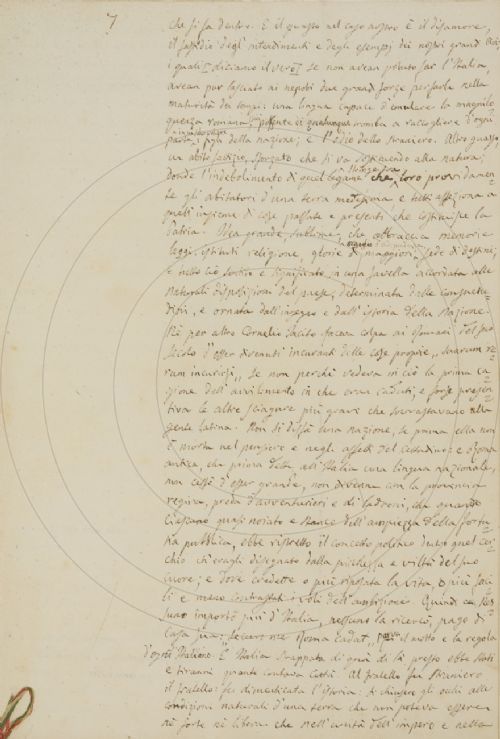 7
che si fa dentro. E il guasto nel caso nostro è il disamore,
il fastidio degli intendimenti e degli esempj dei nostri grandi
i quali diciamo il vero se non avean potuto far l'Italia,
avean pur lasciato ai nepoti due grandi forze per farla nella
maturità dei tempi: una lingua capace d'emulare la magnilo-
quenza romana, possente a raccogliere d'ogni
parte i figli della nazione; e l'odio dello straniero. Altro guasto,
un abito fattizio, sforzato che si va sostituendo alla natura;
donde l'indebolimento di quel legame che loro provvidamen-
te gli abitatori d'una terra medesima, e dell'affezione a
quell'insieme di cose passate e presenti che costituisce la
Patria. Idea grande, sublime, che abbraccia memorie
leggi, istituti religione, glorie di maggiori, sede di destini;
e tutto ciò e significato in una favella accordata alle
naturali disposizioni del paese, determinata dalle consuetu-
dini, e ornata dall'ingegno e dall'istoria della Nazione.
Nè per altro Cornelio Tacito facea colpa ai Romani del suo
secolo d'esser divenuti incuranti delle cose proprie, "suarum re-
rum incuriosi", se non perchè vedeva in ciò la prima ca-
gione dell'avvilimento in che eran caduti, e forse presen-
tiva le altre sciagure più gravi che sovrastavano alla
gente latina. Non si disfà una nazione, se prima ella non
è morta nel pensiero e negli affetti del cittadino; e Roma
antica, che prima dette all'Italia una lingua nazionale,
non cessò d'esser grande, non divenne con la provincia
regina, preda d'avventurieri e di ladroni, che quando
ciascuno quasi noiato e stanco dell'ampiezza della fortu-
na pubblica, ebbe ristretto il concetto politico dentro quel cer-
chio ch'eragli disegnato dalla picchezza e viltà del suo
cuore; e dove credette o più riposata la vita o più faci-
li e meno contrastati i voli dell'ambizione. Quindi a nes-
suno importò più d'Italia, nessuno la ricercò, pago di
casa sua: Roma cadat, il motto e la regola
d'ogni Italiano. E Italia strappata di qua di là presto ebbe stati
e tiranni quante contava città. Al fratello fu straniero
il fratello: fu dimenticata l'istoria: si chiusero gli occhi alle
condizioni naturali d'una terra che non poteva essere
nè forte nè libera che nell'unità dell'impero e nella